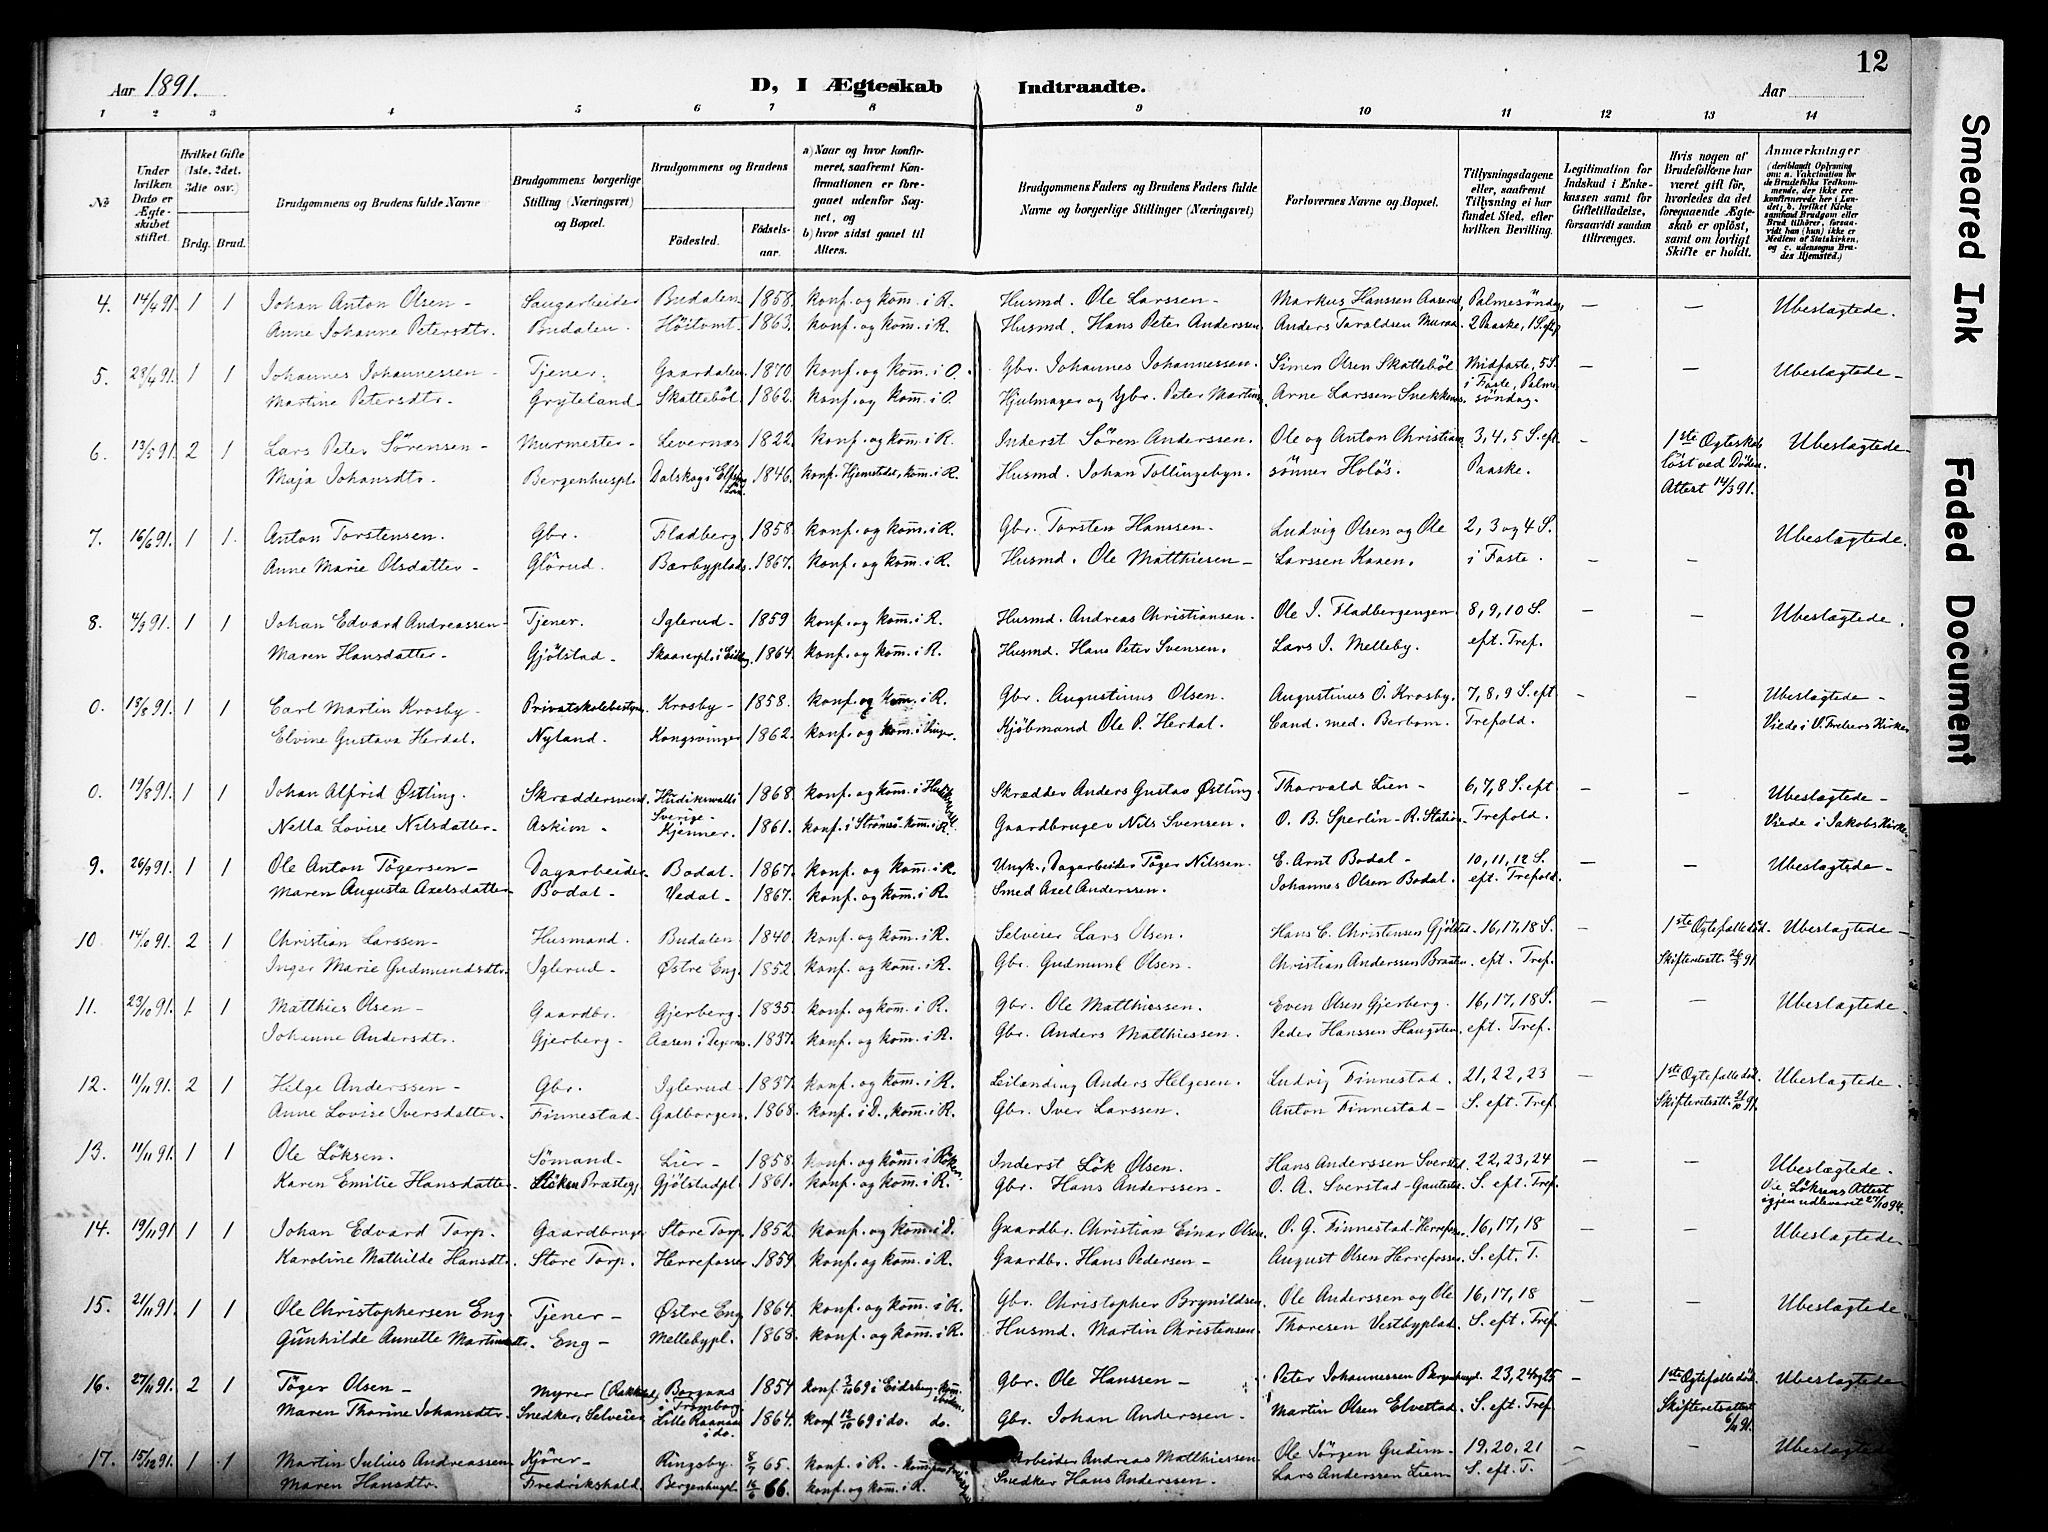 12
Aar 1891.
D, I Ægteskab Indtraadte.
Aar
1 2 3 4 5 6 7 8 9 10 11 12 13 14
No
Under hvilken Dato er Ægteskabet stiftet.
Hvilket Gifte (1ste, 2det, 3die osv.)
Brdg. Brud.
Brudgommens og Brudens fulde Navne
Brudgommens borgerlige Stilling (Næringsvei) og Bopæl.
Brudgommens og Brudens
Fødested. Fødselsaar.
a) Naar og hvor konfirmeret, saafremt Konfirmationen er foregaaet udenfor Sognet, og
b) hvor sidst gaaet til Alters.
Brudgommens Faders og Brudens Faders fulde Navne og borgerlige Stillinger (Næringsvei)
Forlovernes Navne og Bopæl.
Tillysningsdagene eller, saafremt Tillysning ei har fundet Sted, efter hvilken Bevilling.
Legitimation for Indskud i Enkekassen samt for Giftetilladelse, forsaavidt saadan tiltrænges.
Hvis nogen af Brudefolkene har været gift før, hvorledes da det foregaaende Ægteskab er opløst, samt om lovligt Skifte er holdt.
Anmærkninger (deriblandt Oplysning om: a. Vakcination for de Brudefolks Vedkommende, der ikke ere konfirmerede her i Landet; b. hvilket Kirkesamfund Brudgom eller Brud tilhører, forsaavidt han (hun) ikke er Medlem af Statskirken, og c. udensogns Brudes Hjemsted.)
4. 14/4 91. 1 1 Johan Anton Olsen - Saugarbeider Budalen 1858. konf. og kom. i R. Husmd. Ole Larssen - Markus Hanssen Aaserud, Palmesöndag, - - Ubeslægtede.
Anne Johanne Petersdtr. Budalen. Höitomt. 1863. konf. og kom. i R. Husmd. Hans Peter Anderssen. Anders Taraldsen 2 Paaske, 1 S. eft.
5. 28/4 91. 1 1 Johannes Johannessen - Tjener. Gaardalen 1870 konf. og kom. i O. Gbr. Johannes Johannessen. Simen Olsen Skatteböl Midfaste, 5 S. - - Ubeslægtede -
Martine Petersdtr. Gryteland - Skatteböl 1862. konf. og kom. i O. Hjulmager og Gbr. Peter Martins. Arne Larssen Snekkenes. i Faste, Palmesöndag.
6. 13/5 91. 2 1 Lars Peter Sörensen - Murmester - Levernæs 1822. konf. og kom. i R. Inderst Sören Anderssen. Ole og Anton Christian 3, 4, 5 S. eft. - 1ste Ægteskab Ubeslægtede -
Maja Johansdtr. Bergenhuspl. Dalskog i Elfsborg Län. 1846. konf. Hjemstedet, kom. i R. Husmd. Johan Tollingebyn. sönner Holös. Paaske. löst ved Döden.
Attest 14/3 91.
7. 16/6 91. 1 1. Anton Torstensen. Gbr. Fladberg 1858. konf. og kom. i R. Gbr. Torsten Hanssen. Ludvig Olsen og Ole 2, 3 og 4 S. Ubeslægtede.
Anne Marie Olsdatter - Glörud. Bærbyplads 1867. konf. og kom. i R. Husmd. Ole Matthiesen - Larssen Kaaen. i Faste. - -
8. 4/9 91. 1 1 Johan Edvard Andreassen - Tjener. Iglerud - 1859 konf. og kom. i R. Husmd. Andreas Christiansen. Ole I. Fladbergengen 8, 9, 10 S. - - Ubeslægtede.
Maren Hansdatter - Gjölstad - Skaarerpl. i Eidsbg. 1864. konf. og kom. i R. Husmd. Hans Peter Svensen. Lars I. Melleby. eft. Tref.
0. 13/8 91. 1 1 Carl Martin Krosby - Privatskolebestyrer Krosby - 1858. konf. og kom. i R. Gbr. Augustinus Olsen. Augustinus O. Krosby. 7, 8, 9 S. eft - - Ubeslægtede -
Elvine Gustava Herdal. Nyland. Kongsvinger 1862. konf. og kom. i Vinger. Kjöbmand Ole P. Herdal. Cand. med. Berbom. Trefold. Viede i V. Frelsers Kirke
0. 19/8 91. 1 1 Johan Alfrid Østling. Skræddersvend. Hudikswall i Sverige - 1868. konf. og kom. i Hudikswall Skrædder Anders Gustav Østling. Thorvald Lien - 6, 7, 8 S. eft - - Ubeslægtede -
Nella Lovise Nilsdatter - Askim - Kjenner. 1861. konf. i Strömsö. kom. i R. Gaardbruger Nils Svensen. O. B. Sperlin - R. Station. Trefold. Viede i Jakobs Kirke
9. 26/9 91. 1 1 Ole Anton Tögersen - Dagarbeider. Bodal. 1867. konf. og kom. i R. Ungk., Dagarbeider Töger Nilssen. E. Arnt Bodal - 10, 11, 12 S. - - Ubeslægtede -
Maren Augusta Axelsdatter - Bodal - Vedal - 1867. konf. og kom. i R. Smed Axel Anderssen. Johannes Olsen Bodal. eft. Trefold.
10. 14/10 91. 2 1 Christian Larssen - Husmand. Budalen 1840. konf. og kom. i R. Selveier Lars Olsen. Hans C. Christensen Gjölstad. 16, 17, 18 S. - 1ste Ægtefælle död. Ubeslægtede -
Inger Marie Gudmundsdtr. Iglerud - Østre Eng. 1852. konf. og kom. i R. Gbr. Gudmund Olsen. Christian Anderssen Braaten. eft. Tref. Skifteretsatt. 91.
11. 23/10 91. 1 1 Matthies Olsen - Gaardbr. Gjerberg. 1835. konf. og kom. i R. Gbr. Ole Matthiessen. Even Olsen Gjerberg. 16, 17, 18 S. - - Ubeslægtede
Johanne Andersdtr. Gjerberg - Aasen i Degernes. 1837. konf. og kom. i R. Gbr. Anders Matthiessen. Peder Hanssen Haugsten. eft. Tref.
12. 11/11 91. 2 1 Helge Anderssen - Gbr. Iglerud 1837. konf. og kom. i R. Leilænding Anders Helgesen. Ludvig Finnestad. 21, 22, 23 - 1ste Ægtefælle död. Ubeslægtede.
Anne Lovise Iversdatter. Finnestad. Galborgen 1868. konf. i D., kom. i R. Gbr. Iver Larssen. Anton Finnestad - S. eft. Tref. Skifteretsatt. 21/10 91.
13. 11/11 91. 1 1 Ole Löksen. Sömand - Lier - 1858. konf. og kom. i Röken Inderst Lök Olsen. Hans Anderssen Sverstad. 22, 23, 24 - - Ubeslægtede.
Karen Emilie Hansdatter. Röken Præstegj. Gjölstadpl. 1861. konf. og kom. i R. Gbr. Hans Anderssen - O. A. Sverstad - S. eft. Tref. Vie Löksens Attest igjen udleveret 27/10 94.
14. 19/11 91. 1 1 Johan Edvard Torp. Gaardbruger Store Torp. 1852. konf. og kom. i D. Gaardbr. Christian Einar Olsen. O. G. Finnestad - Herrefossen 16, 17, 18 - - Ubeslægtede.
Karoline Mathilde Hansdtr. Store Torp. Herrefossen 1859. konf. og kom. i R. Gaardbr. Hans Pedersen - August Olsen Herrefossen. S. eft. T.
15. 21/11 91. 1 1 Ole Christophersen Eng. Tjener - Østre Eng 1864. konf. og kom. i R. Gbr. Christopher Brynildsen. Ole Anderssen og Ole 16, 17, 18 - - Ubeslægtede.
Gunhilde Annette Martinsdtr. Eng - Mellebypl. 1868. konf. og kom. i R. Husmd. Martin Christensen. Thoresen Vestbyplad. S. eft. Tref.
16. 27/11 91. 2 1 Töger Olsen - Myrer (Rakkestad) Borgaas i Trømborg 1854 konf. 3/10 69 i Eidsberg - kom. Gbr. Ole Hanssen - Peter Johannessen Bergenhuspl. 23, 24 og 25 - 1ste Ægtefælle död. Ubeslægtede
Maren Thorine Johansdtr. Snedker, Selveier Lille Raanaas i do. 1864. konf. 12/10 69 i do. do. Gbr. Johan Anderssen. Martin Olsen Elvestad. S. eft. Tref. Skifteretsattest 6/11 91.
17. 15/12 91. 1 1 Martin Julius Andreassen Kjörer - Ringsby. 8/7 65. konf. i R. - kom. Arbeider Andreas Matthiessen. Ole Jörgen Gudim - 19, 20, 21 - - Ubeslægtede
Maren Hansdtr. Fredrikshald. Bergenhuspl. 16/6 66. konf. og kom. i R. Snedker Hans Anderssen. Lars Anderssen Liem - S. eft. T.
Smeared Ink
Faded Document